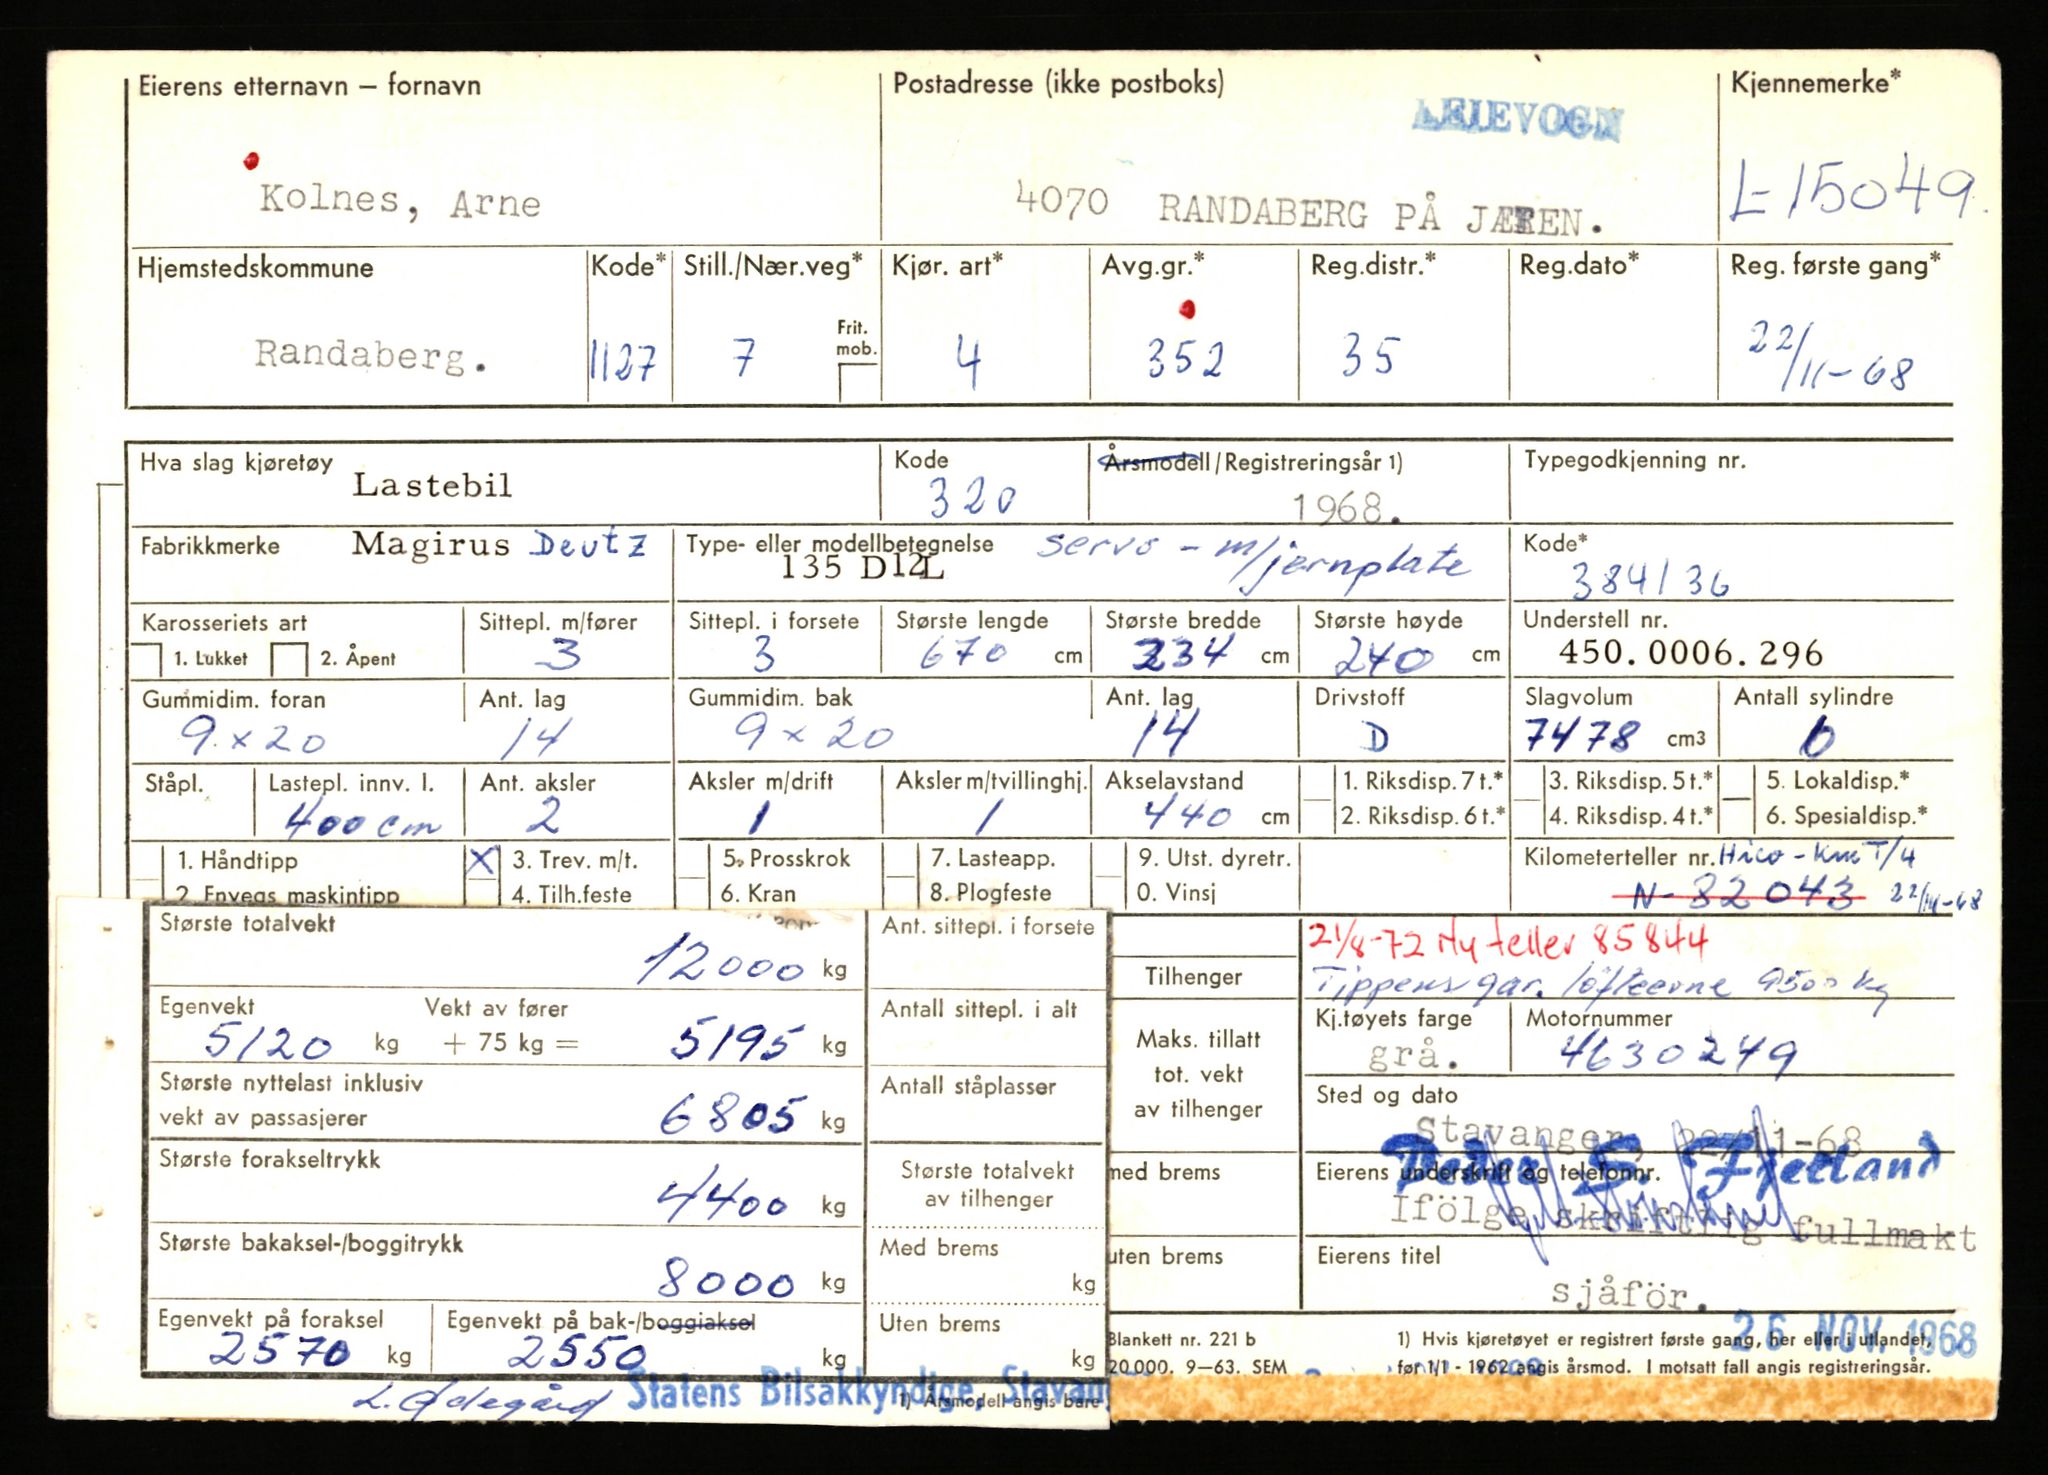 Eierens etternavn – fornavn
Kolnes, Arne
Postadresse (ikke postboks)
LEIEVOGN
4070 RANDABERG PÅ JÆREN.
Kjennemerke*
L-15049
Hjemstedskommune
Randaberg.
Kode*
1127
Still./Nær.veg*
7
Frit. mob.
Kjør. art*
4
Avg.gr.*
352
Reg.distr.*
35
Reg.dato*
Reg. første gang*
22/11-68
Hva slag kjøretøy
Lastebil
Kode
320
Årsmodell/Registreringsår 1)
1968.
Typegodkjenning nr.
Fabrikkmerke
Magirus Deutz
Type- eller modellbetegnelse
servo - m/jernplate
135 D12L
Kode*
384136
Karosseriets art
1. Lukket 2. Åpent
Sittepl. m/fører
3
Sittepl. i forsete
3
Største lengde
670 cm
Største bredde
234 cm
Største høyde
240 cm
Understell nr.
450.0006.296
Gummidim. foran
9 x 20
Ant. lag
14
Gummidim. bak
9 x 20
Ant. lag
14
Drivstoff
D
Slagvolum
7478 cm3
Antall sylindre
6
Ståpl.
Lastepl. innv. l.
400 cm
Ant. aksler
2
Aksler m/drift
1
Aksler m/tvillinghj.
1
Akselavstand
440 cm
1. Riksdisp. 7 t.*
2. Riksdisp. 6 t.*
3. Riksdisp. 5 t.*
4. Riksdisp. 4 t.*
5. Lokaldisp.*
6. Spesialdisp.*
1. Håndtipp
2. Envegs maskintipp
X 3. Trev. m/t.
4. Tilh.feste
5. Prosskrok
6. Kran
7. Lasteapp.
8. Plogfeste
9. Utst. dyretr.
0. Vinsj
Kilometerteller nr. Hico - Km T/4
N-82043 22/11-68
21/8-72 Ny teller 85844
Tippens gar. løfteevne 9500 kg
Største totalvekt
12000 kg
Ant. sittepl. i forsete
Tilhenger
Egenvekt
5120 kg
Vekt av fører
+ 75 kg = 5195 kg
Antall sittepl. i alt
Maks. tillatt
tot. vekt
av tilhenger
Kj.tøyets farge
grå.
Motornummer
4630249
Største nyttelast inklusiv
vekt av passasjerer
6805 kg
Antall ståplasser
Sted og dato
Stavanger, 22/11-68
Største forakseltrykk
4400 kg
Største totalvekt
av tilhenger
med brems
Eierens underskrift og telefonnr.
Peder S. Fjelland
Ifölge skriftlig fullmakt
Største bakaksel-/boggitrykk
8000 kg
Med brems
kg
uten brems
Eierens titel
sjåför.
Egenvekt på foraksel
2570 kg
Egenvekt på bak-/boggiaksel
2550 kg
Uten brems
kg
26 NOV. 1968
Blankett nr. 221 b
20.000. 9-63. SEM
1) Hvis kjøretøyet er registrert første gang, her eller i utlandet,
før 1/1 - 1962 angis årsmod. I motsatt fall angis registreringsår.
L. Ødegård
Statens Bilsakkyndige, Stavan
1) Årsmodell angis bare